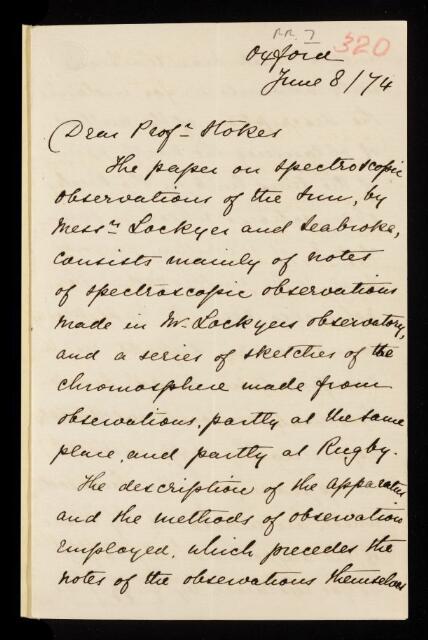 RR. 7 320
Oxford
June 8/74
Dear Prof.r Stokes
The paper on spectroscopic
observations of the Sun, by
Mess.rs Lockyer and Seabroke,
consists mainly of notes
of spectroscopic observations
made in Mr. Lockyers observatory,
and a series of sketches of the
chromosphere made from
observations, partly at the same
place, and partly at Rugby.
The description of the apparatus
and the methods of observation
employed, which precedes the
notes of the observations themselves